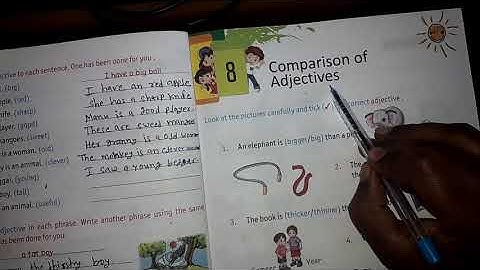 ective to each sentence. One has been done for you.
(big) I have a big ball
(red) I have an red apple
knife. (sharp) She has a sharp knife
player. (good) Manu is a good player.
mangoes. (sweet) These are sweet mangoes
is a woman. (old) Her granny is a old woman
y is an animal. (clever) The monkey is an clever
(young) I saw a young beggar
boy. (tall)
an animal. (useful)
djective in each phrase. Write another phrase using the same
has been done for you.
a fat boy
the thirsty boy
8
Comparison of
Adjectives
Look at the pictures carefully and tick (✓) correct adjective.
1. An elephant is (bigger/big) than a
2. The
the
3. The book is (thicker/thinner)
4.
Year